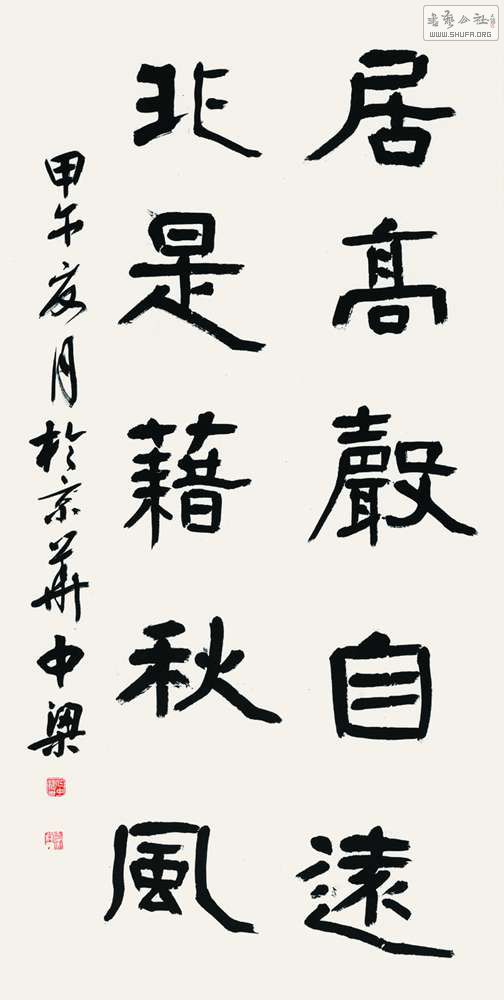 居高聲自遠
非是藉秋風
甲午夏月於京華中梁
書藝公社
WWW.SHUFA.ORG